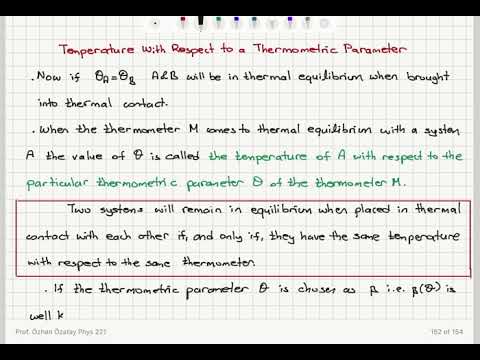 Temperature With Respect to a Thermometric Parameter
. Now if θA=θB A&B will be in thermal equilibrium when brought
into thermal contact.
. When the thermometer M comes to thermal equilibrium with a system
A the value of θ is called the temperature of A with respect to the
particular thermometric parameter θ of the thermometer M.
Two systems will remain in equilibrium when placed in thermal
contact with each other if, and only if, they have the same temperature
with respect to the same thermometer.
. If the thermometric parameter θ is chosen as β i.e. β(θ) is
well k
Prof. Özhan Özatay Phys 221
152 of 154